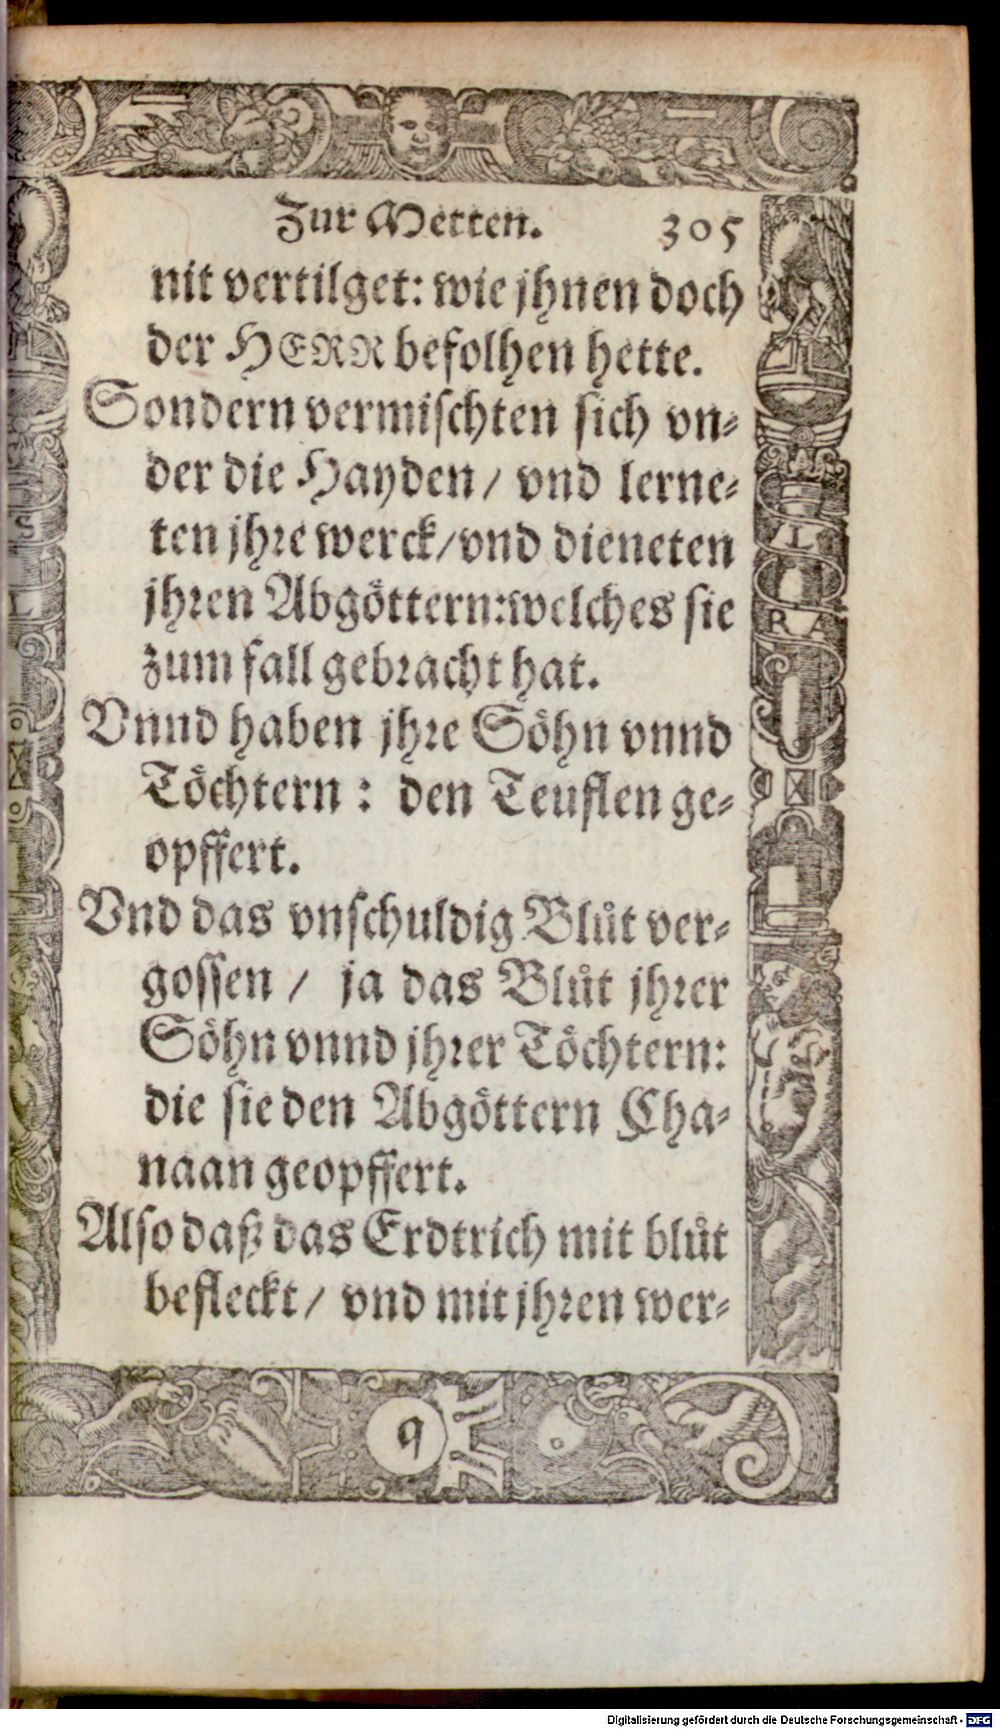 Zur Metten. 305
nit vertilget: wie jhnen doch
der HERR befolhen hette.
Sondern vermischten sich vn-
der die Hayden / vnd lerne-
ten jhre werck / vnd dieneten
jhren Abgöttern: welches sie
zum fall gebracht hat.
Vnnd haben jhre Söhn vnnd
Töchtern : den Teuflen ge-
opffert.
Vnd das vnschuldig Blůt ver-
gossen / ja das Blůt jhrer
Söhn vnnd jhrer Töchtern:
die sie den Abgöttern Cha-
naan geopffert.
Also daß das Erdtrich mit blůt
befleckt / vnd mit jhren wer-
q
Digitalisierung gefördert durch die Deutsche Forschungsgemeinschaft - DFG